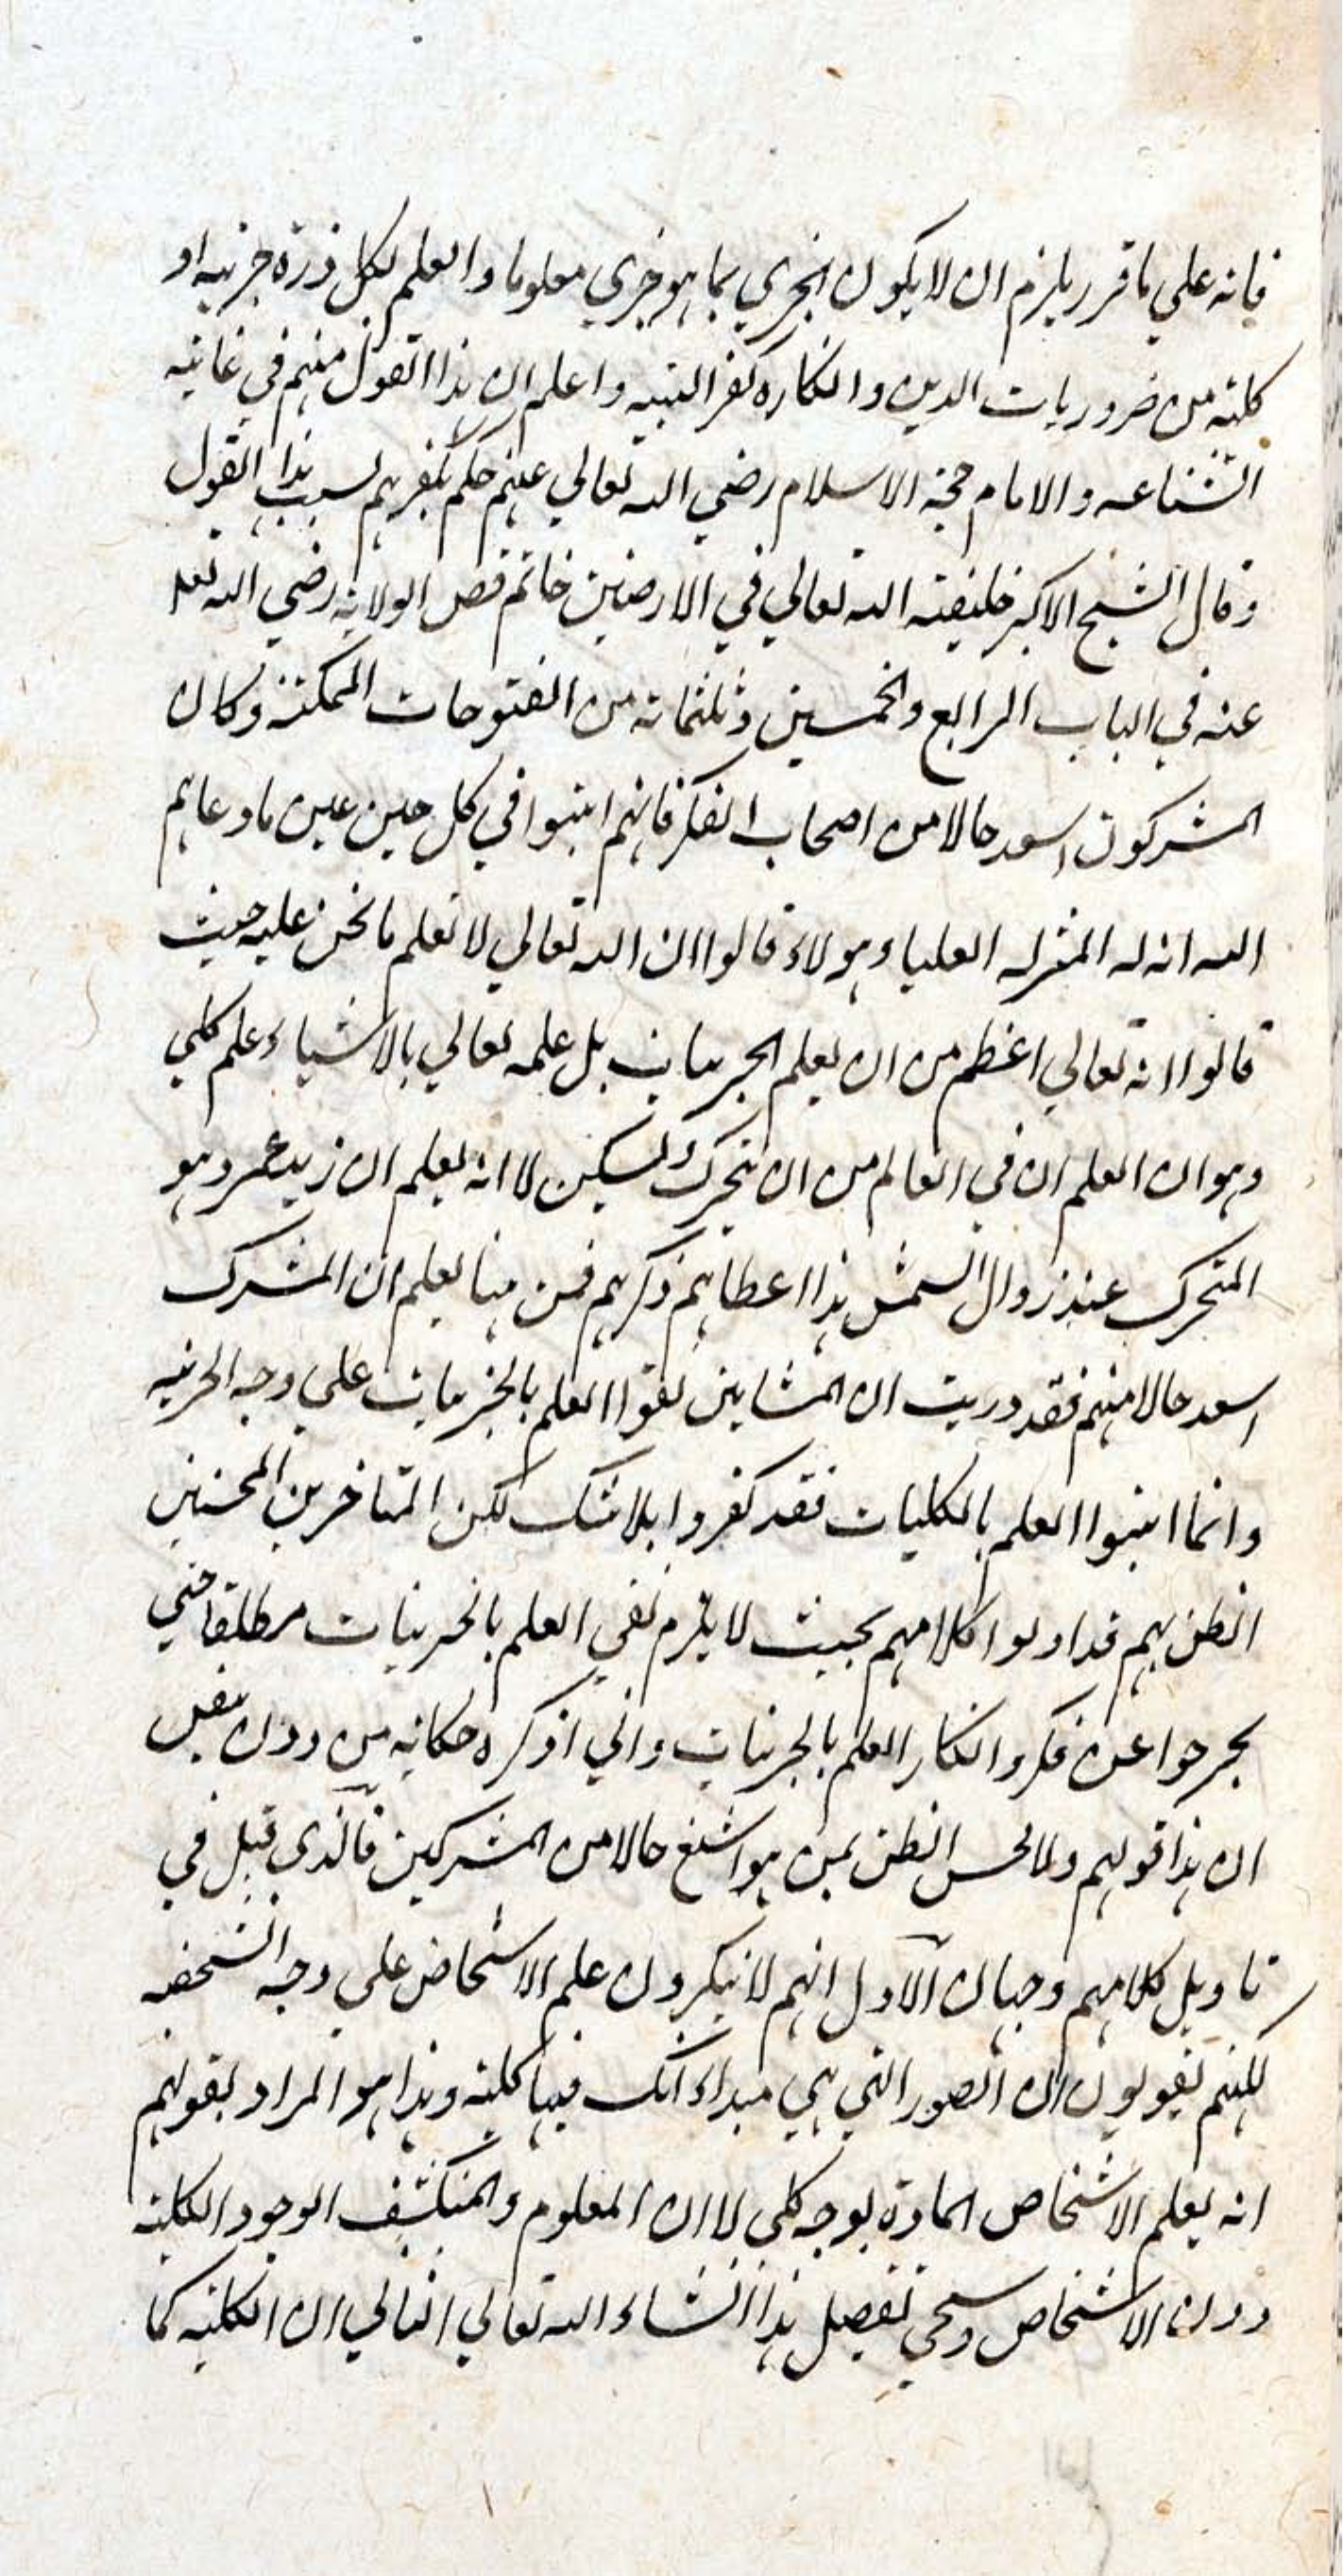 فانه علي ما قرر يلزم ان لا يكون الجزي بما هو جزي معلوما والعلم لكل ذرة جزييه او
كلية من ضروريات الدين وانكاره كفر البتيه واعلم ان هذا القول منهم في غاية
الشناعه والامام حجة الاسلام رضي الله تعالي عنهم حكم بكفرهم بسبب هذا القول
وقال الشيخ الاكبر خليفة الله تعالي في الارضين خاتم فص الولاية رضي الله تعا
عنه في الباب الرابع والخمسين وثلثماته من الفتوحات المكية وكان
المشركون اسعد حالا من اصحاب الفكر فانهم اثبتوا في كل حين عين ما دعاهم
الله انه له المنزله العلياء وهولاء قالوا ان الله تعالي لا يعلم ما نحن عليه حيث
قالوا انه تعالي اعظم من ان يعلم الجزييات بل علمه تعالي بالاشياء علم كلي
وهو ان العلم ان في العالم من ان يتحرك ويسكن لا انه يعلم ان زيد عمرو هو
المتحرك عند زوال الشمس هذا اعطاهم ذكرهم فمن هنا يعلم ان المشرك
اسعد حالا منهم فقد دريت ان المشايين نفوا العلم بالجزييات علي وجه الجزييه
وانما اثبتوا العلم بالكليات فقد كفروا بلا شك لكن المتاخرين المحسنين
الظن بهم قد اولوا كلامهم بحيث لا يلزم نفي العلم بالجزييات مطلقا حتي
يخرجوا عن فكر وانكار العلم بالجزييات واني اذكره حكاية من دون يقين
ان هذا قولهم ولا يحسن الظن بمن هو اشنع حالا من المشركين فالذي قيل في
تاويل كلامهم وجهان الاول انهم لا ينكرون علم الاشخاص علي وجه الشخصه
لكنهم يقولون ان الصور التي هي مبداء انكـ فيها كلية وهذا هو المراد بقولهم
انه يعلم الاشخاص المادة بوجه كلي لا ان المعلوم والمنكشف الوجود الكلية
دون الاشخاص وسيجي تفصيل هذا انشاء الله تعالي الثاني ان الكلية كما